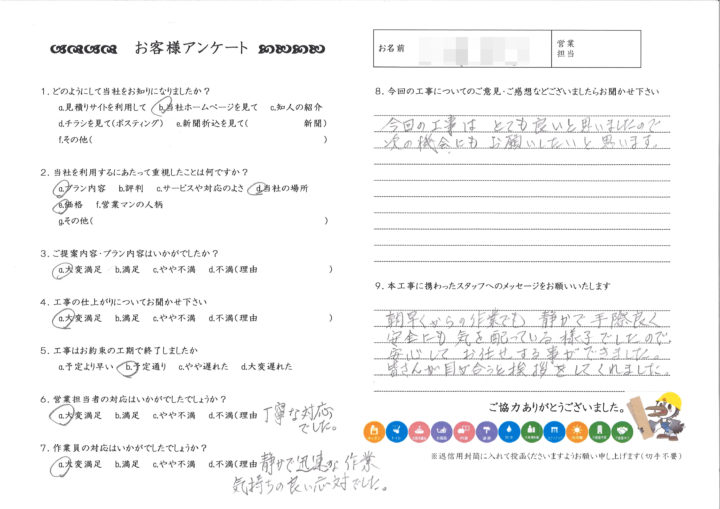 お客様アンケート
1．どのようにして当社をお知りになりましたか？
a.見積りサイトを利用して b.当社ホームページを見て c.知人の紹介
d.チラシを見て(ポスティング) e.新聞折込を見て( 新聞)
f.その他( )
2．当社を利用するにあたって重視したことは何ですか？
a.プラン内容 b.評判 c.サービスや対応のよさ d.当社の場所
e.価格 f.営業マンの人柄
g.その他( )
3．ご提案内容・プラン内容はいかがでしたか？
a.大変満足 b.満足 c.やや不満 d.不満(理由 )
4．工事の仕上がりについてお聞かせ下さい
a.大変満足 b.満足 c.やや不満 d.不満(理由 )
5．工事はお約束の工期で終了しましたか
a.予定より早い b.予定通り c.やや遅れた d.大変遅れた
6．営業担当者の対応はいかがでしたでしょうか？
a.大変満足 b.満足 c.やや不満 d.不満(理由 丁寧な対応
でした。
7．作業員の対応はいかがでしたでしょうか？
a.大変満足 b.満足 c.やや不満 d.不満(理由 静かで迅速な作業
気持ちの良い応対でした。
お名前
営業
担当
8．今回の工事についてのご意見・ご感想などございましたらお聞かせ下さい
今回の工事は とても良いと思いましたので
次の機会にも お願いしたいと思います。
9．本工事に携わったスタッフへのメッセージをお願いいたします
朝早くからの作業でも 静かで手際良く
安全にも気を配っている様子でしたので、
安心して お任せする事ができました。
皆さんが目が合うと挨拶をしてくれました。
ご協力ありがとうございました。
※返信用封筒に入れて投函くださいますようお願い申し上げます(切手不要)